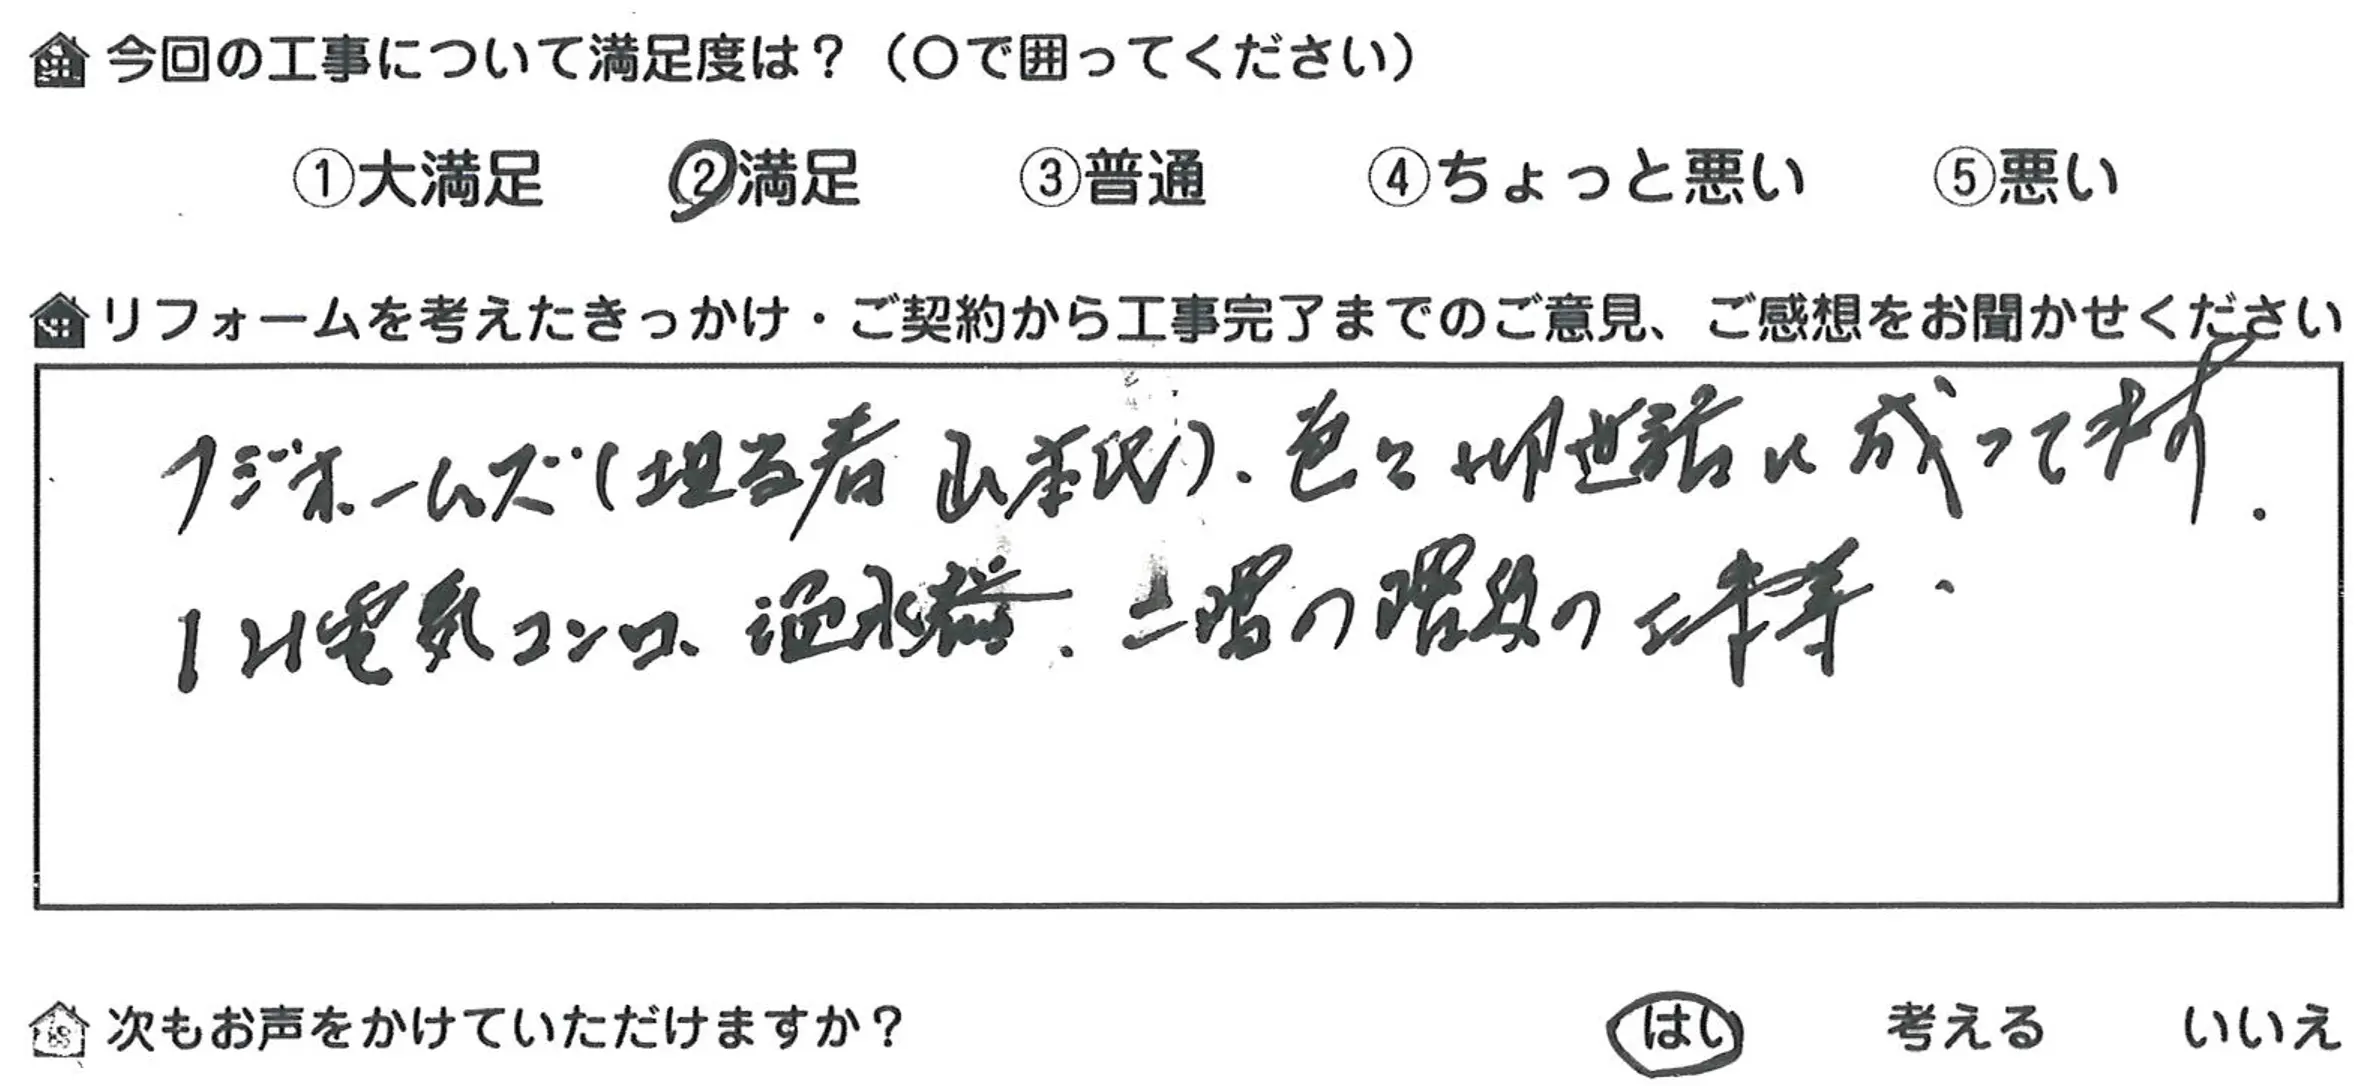 今回の工事について満足度は？（〇で囲ってください）
①大満足 ②満足 ③普通 ④ちょっと悪い ⑤悪い
リフォームを考えたきっかけ・ご契約から工事完了までのご意見、ご感想をお聞かせください
フジホームズ（担当者 山本氏）. 色々御世話に成ってます.
IH電気コンロ、温水器. 二階の階段の工事等.
次もお声をかけていただけますか？ はい 考える いいえ